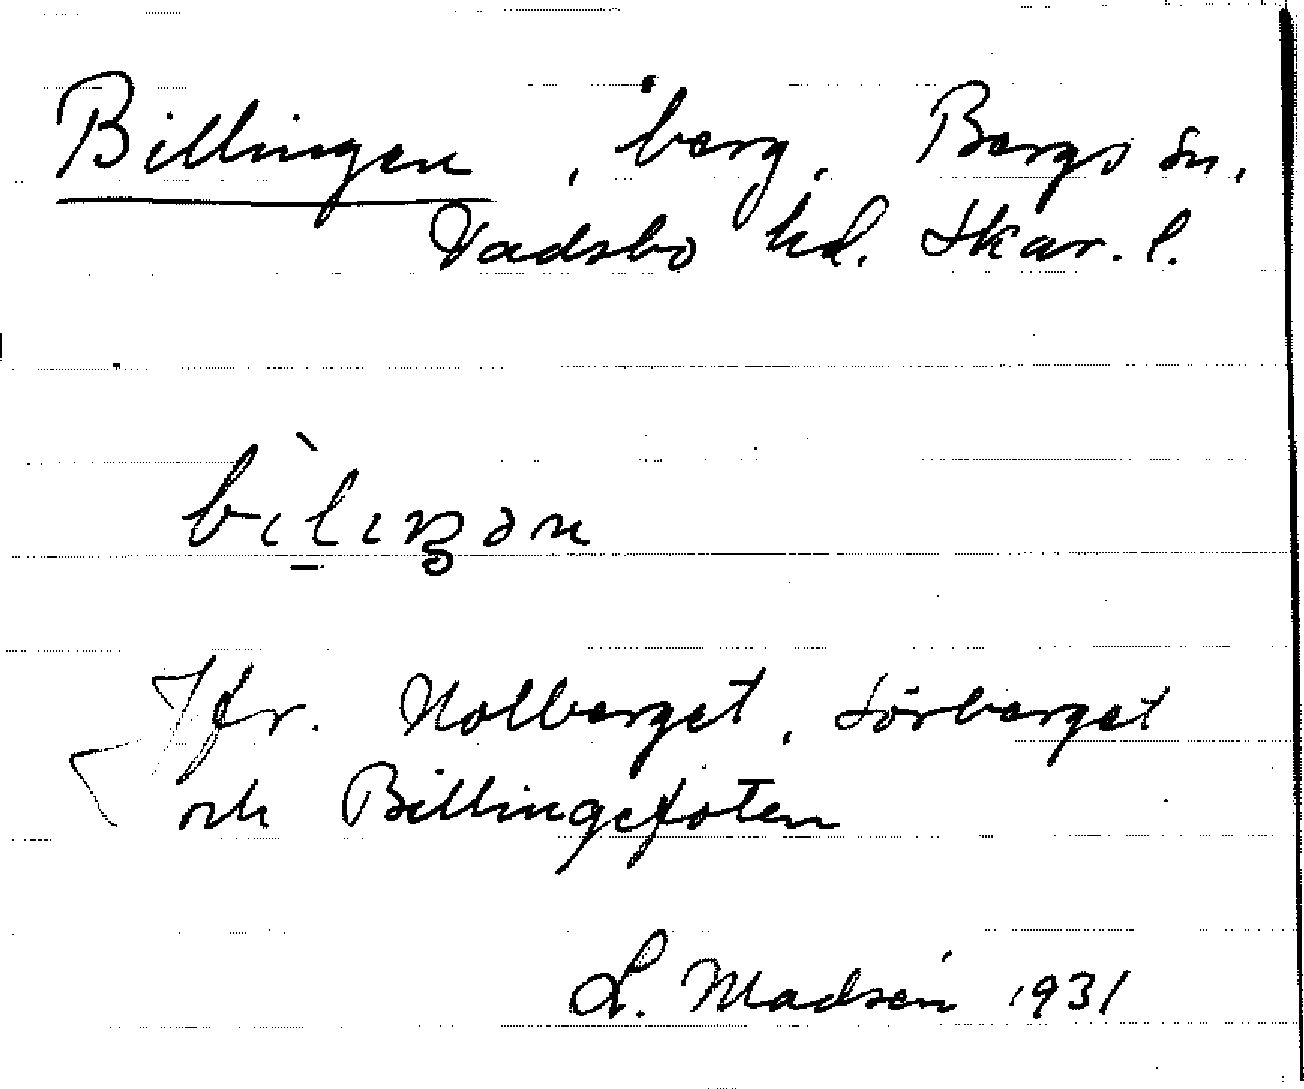 Billingen, berg, Bergs sn,
Vadsbo hd. Skar. l.
bìl̠ıŋən
Jfr. Nolberget, Sörberget
och Billingefoten
L. Madsén 1931